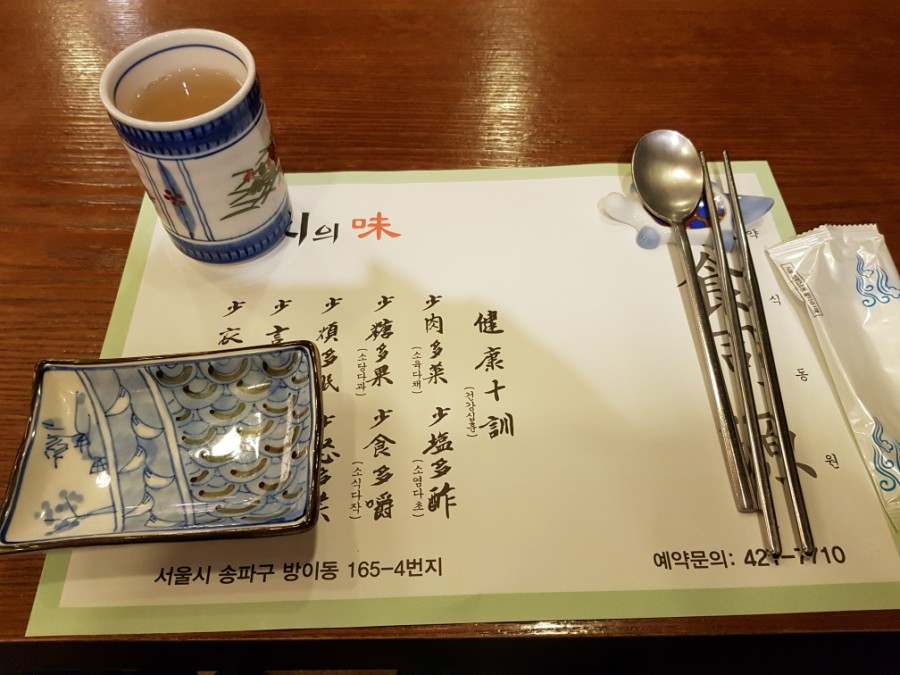 의 味
약식동원
食
健康十訓
(건강십훈)
少肉多菜
(소육다채)
少塩多酢
(소염다초)
少糖多果
(소당다과)
少食多嚼
(소식다작)
少煩多眠
少
少言
少衣
서울시 송파구 방이동 165-4번지
예약문의: